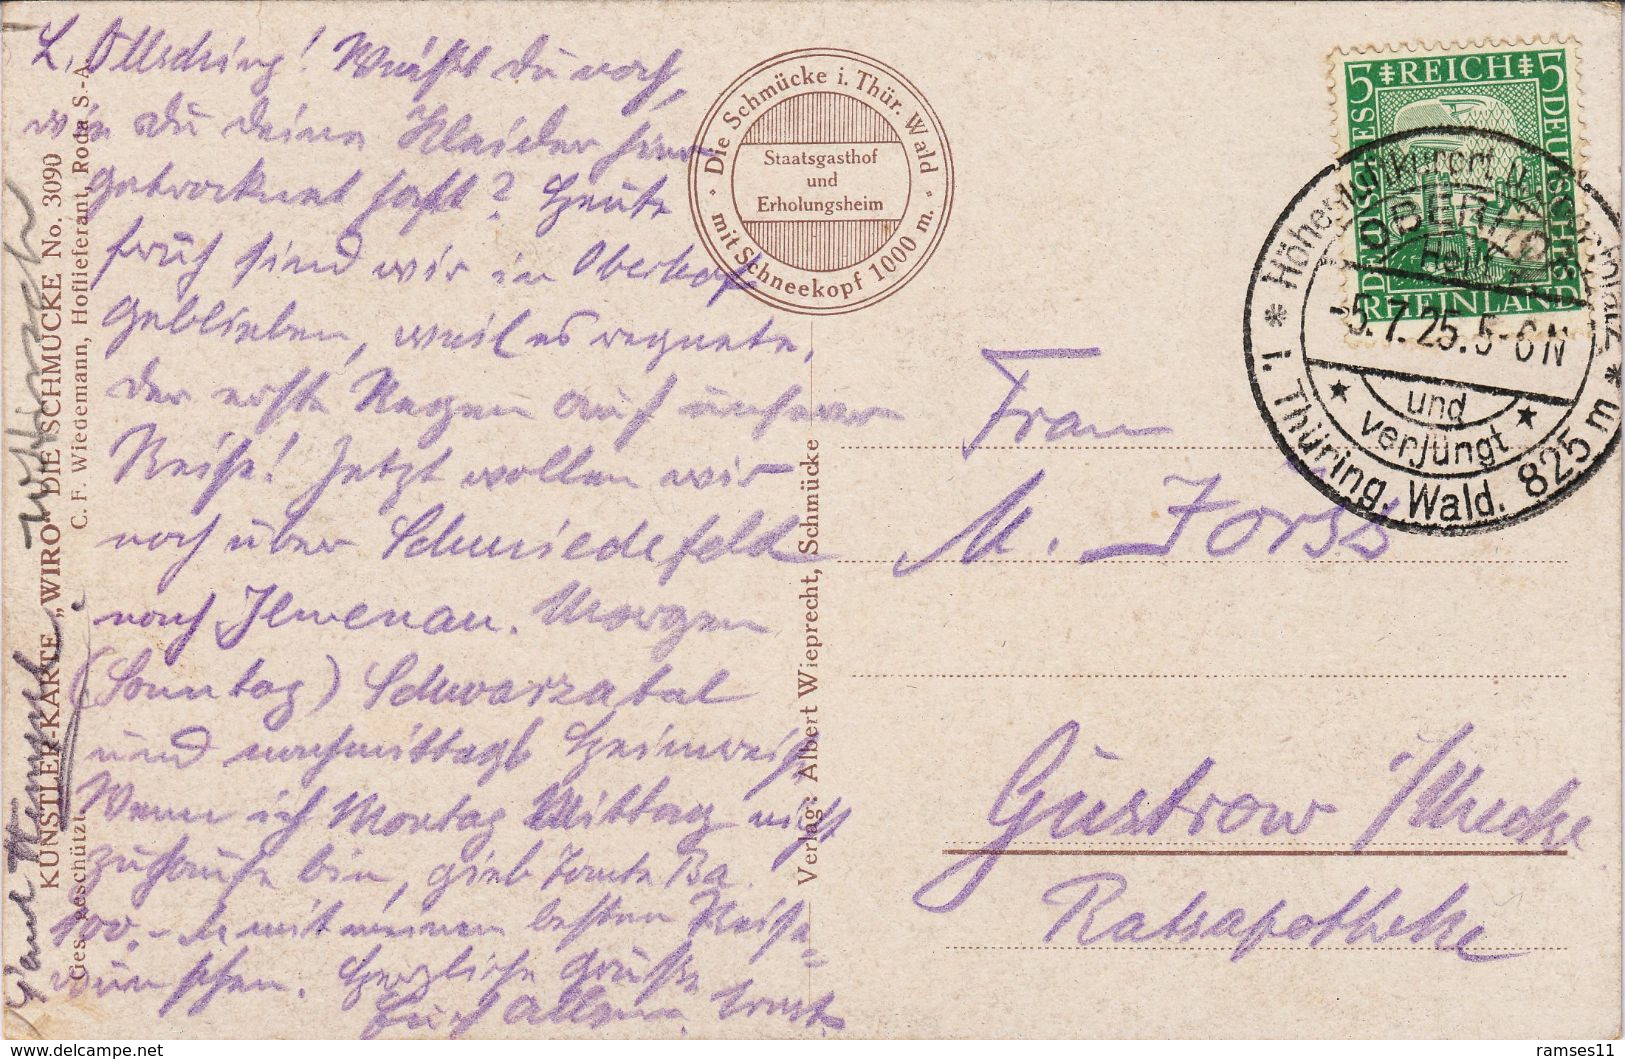 L. Ollsching! Weißt du noch,
wie du deine Kleider hier
getrocknet hast? Heute
früh sind wir in Oberhof
geblieben, weil es regnete.
Der erste Regen auf unserer
Reise! Jetzt wollen wir
noch über Schmiedefeld
nach Ilmenau. Morgen
(Sonntag) Schwarzatal
und nachmittags Heimreise
Wenn ich Montag Mittag nicht
zuhause bin, gieb Tante Ba
100.- M mit meinen besten Reise=
wünschen. Herzliche Grüße
Euch allen. Ernst.
KÜNSTLER-KARTE „WIRO" DIE SCHMÜCKE No. 3090
Ges. geschützt. C. F. Wiedemann, Hoflieferant, Roda S.-A.
Die Schmücke i. Thür. Wald
mit Schneekopf 1000 m.
Staatsgasthof
und
Erholungsheim
Verlag: Albert Wieprecht, Schmücke
5 REICH 5
DEUTSCHES
RHEINLAND
Höhenluftkurort
OBERHOF
5.7.25.5-6N
und
verjüngt
i. Thüring. Wald. 825 m
Frau
M. Förss
Güstrow i/Meckl.
Ratsapotheke
ramses11